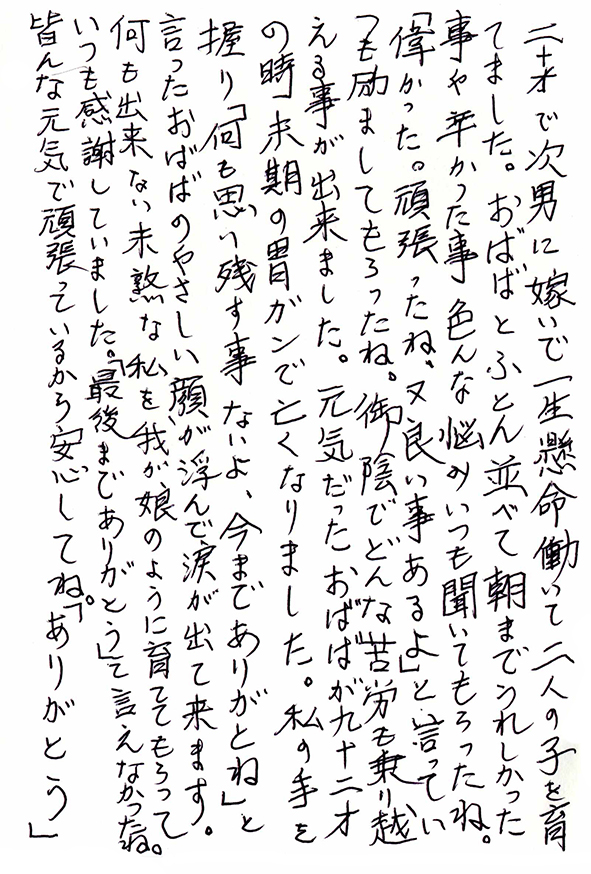 二十才で次男に嫁いで一生懸命働いて二人の子を育
てました。おばばとふとん並べて朝までうれしかった
事や辛かった事色んな悩みいつも聞いてもらったね。
「偉かった。頑張ったね、又良い事あるよ」と言ってい
つも励ましてもらったね。御陰でどんな苦労も乗り越
える事が出来ました。元気だったおばばが九十二才
の時末期の胃ガンで亡くなりました。私の手を
握り「何も思い残す事ないよ、今までありがとね」と
言ったおばばのやさしい顔が浮んで涙が出て来ます。
何も出来ない未熟な私を我が娘のように育ててもらって
いつも感謝していました。「最後までありがとう」て言えなかったね。
皆んな元気で頑張っているから安心してね。「ありがとう」